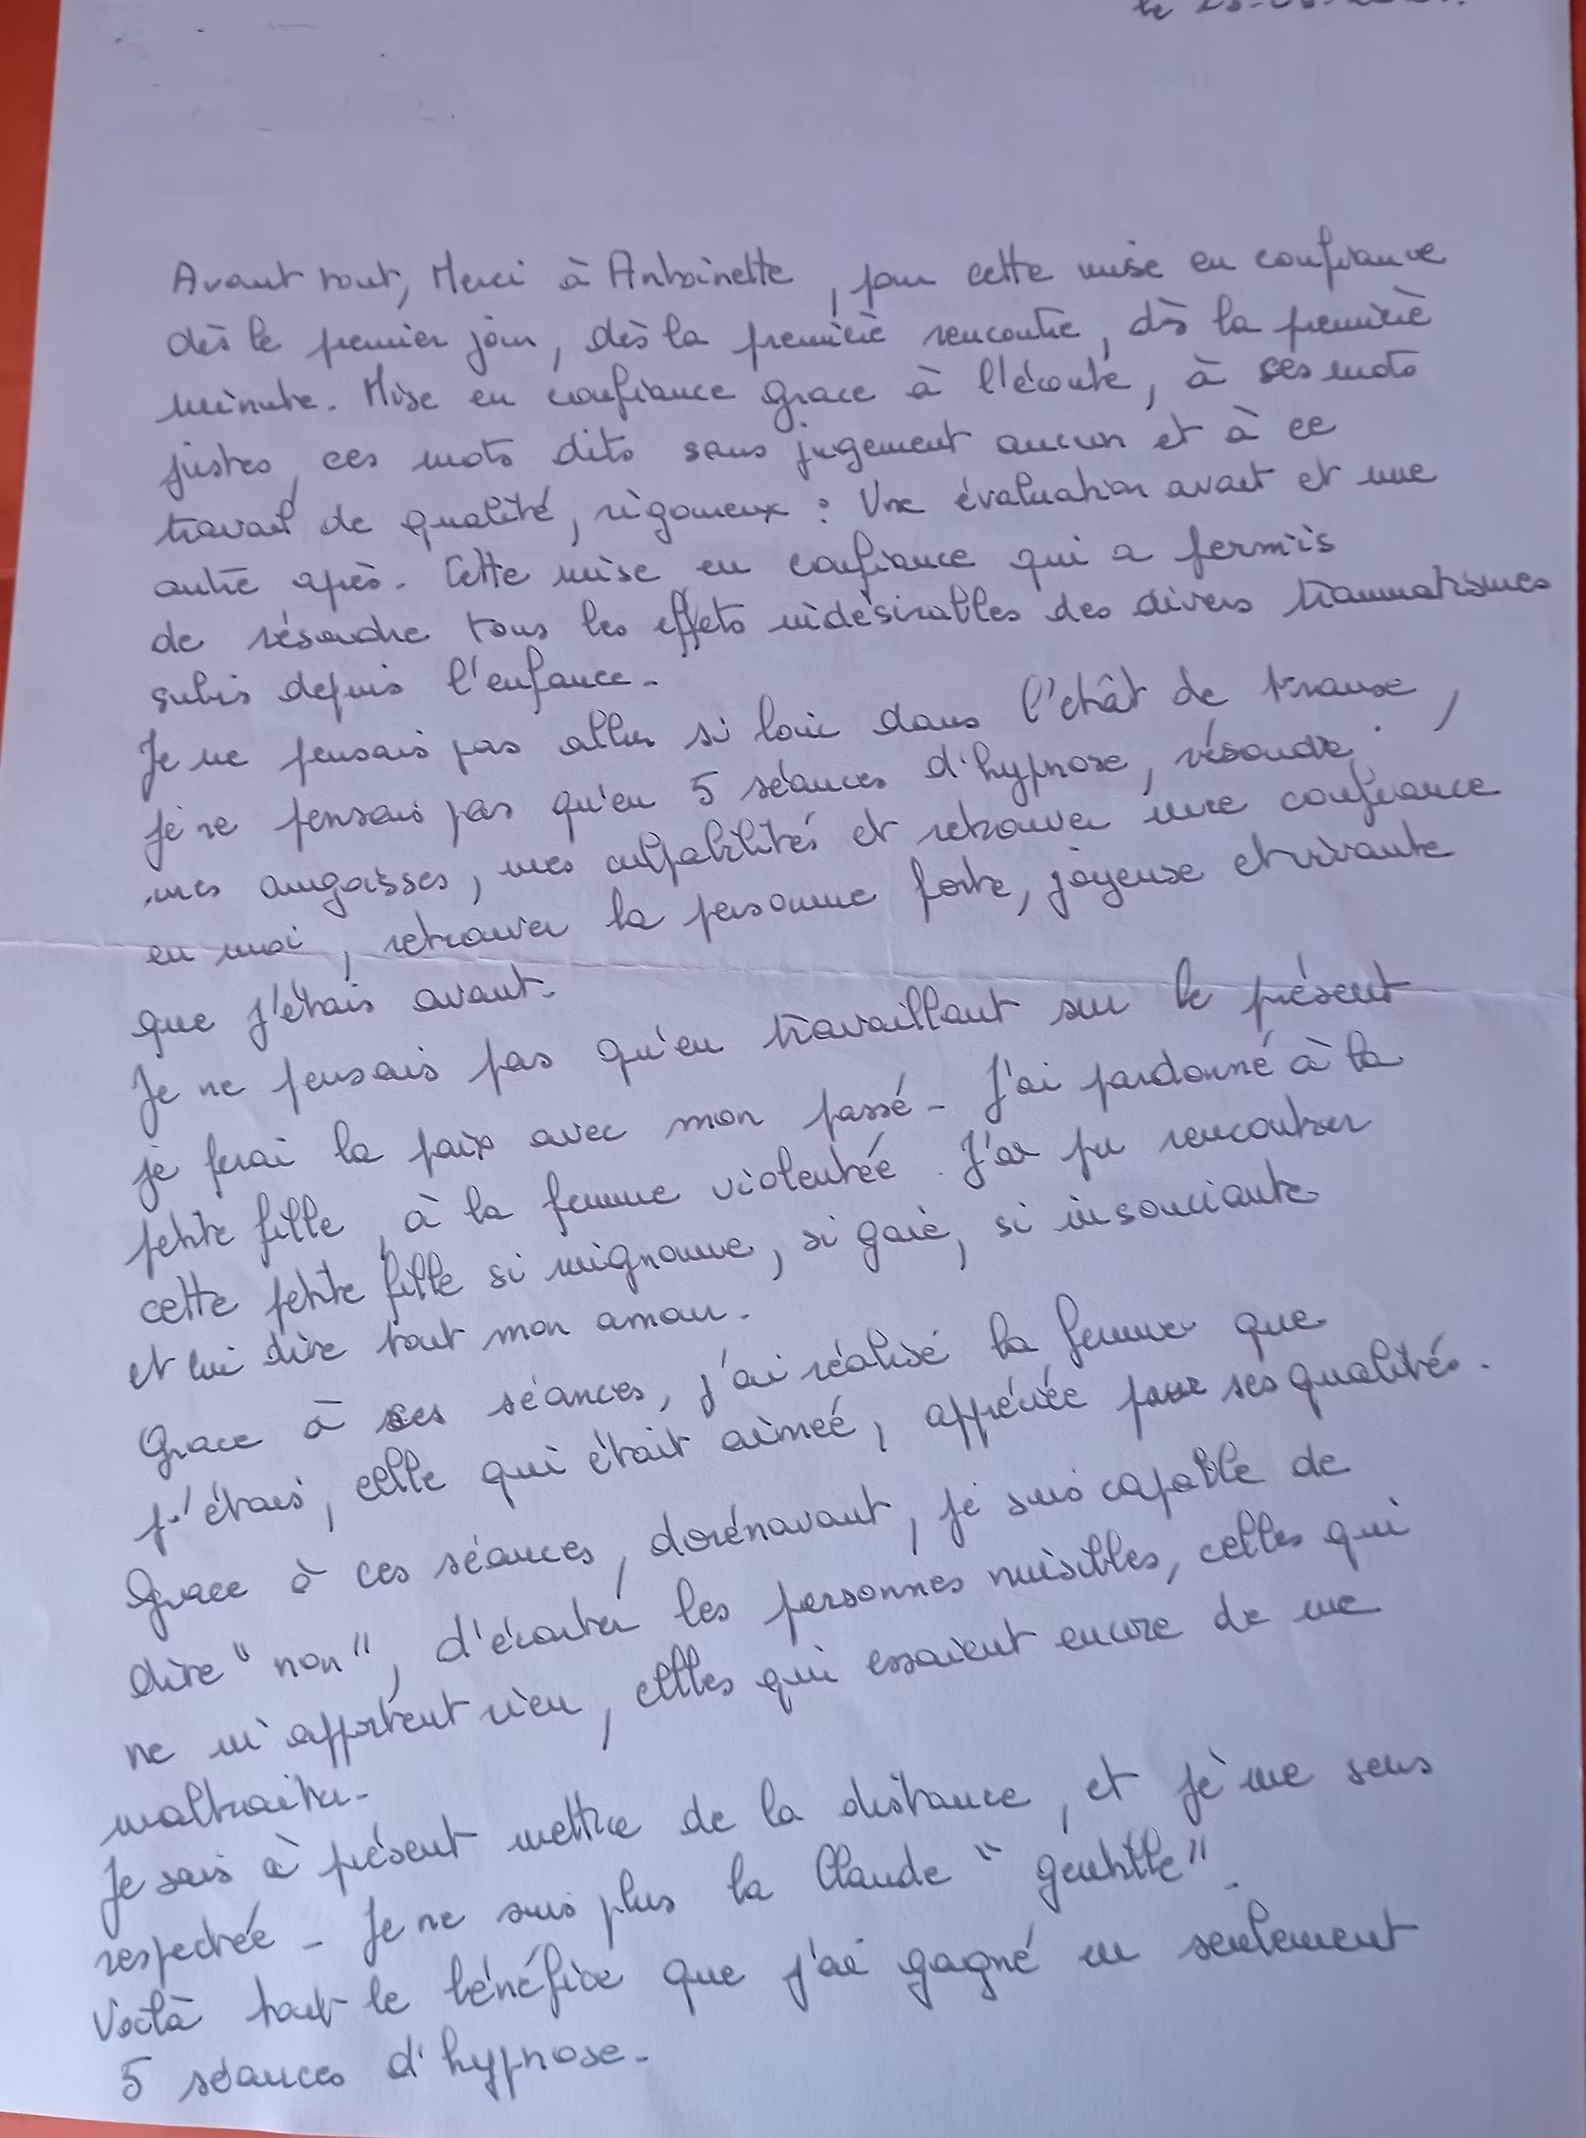 le
Avant tout, Merci à Antoinette, pour cette mise en confiance
dès le premier jour, dès la première rencontre, dès la première
minute. Mise en confiance grace à l'écoute, à ses mots
justes, ces mots dits sans jugement aucun et à ce
travail de qualité, rigoureux : Une évaluation avant et une
autre après. Cette mise en confiance qui a permis
de résoudre tous les effets indésirables des divers traumatismes
subis depuis l'enfance.
Je ne pensais pas aller si loin dans l'état de transe,
je ne pensais pas qu'en 5 séances d'hypnose, résoudre
mes angoisses, mes culpabilités et retrouver une confiance
en moi, retrouver la personne forte, joyeuse et vivante
que j'étais avant.
Je ne pensais pas qu'en travaillant sur le présent
je ferai la paix avec mon passé - J'ai pardonné à la
petite fille, à la femme violentée. J'ai pu rencontrer
cette petite fille si mignonne, si gaie, si insouciante
et lui dire tout mon amour.
Grace à ces séances, j'ai réalisé la femme que
j'étais, celle qui était aimée, appréciée pour ses qualités.
Grace à ces séances, dorénavant, je suis capable de
dire "non", d'écarter les personnes nuisibles, celles qui
ne m'apportent rien, celles qui essaient encore de me
maltraiter.
Je sais à présent mettre de la distance, et je me sens
respectée - Je ne suis plus la Claude "gentille".
Voilà tout le bénéfice que j'ai gagné en seulement
5 séances d'hypnose.